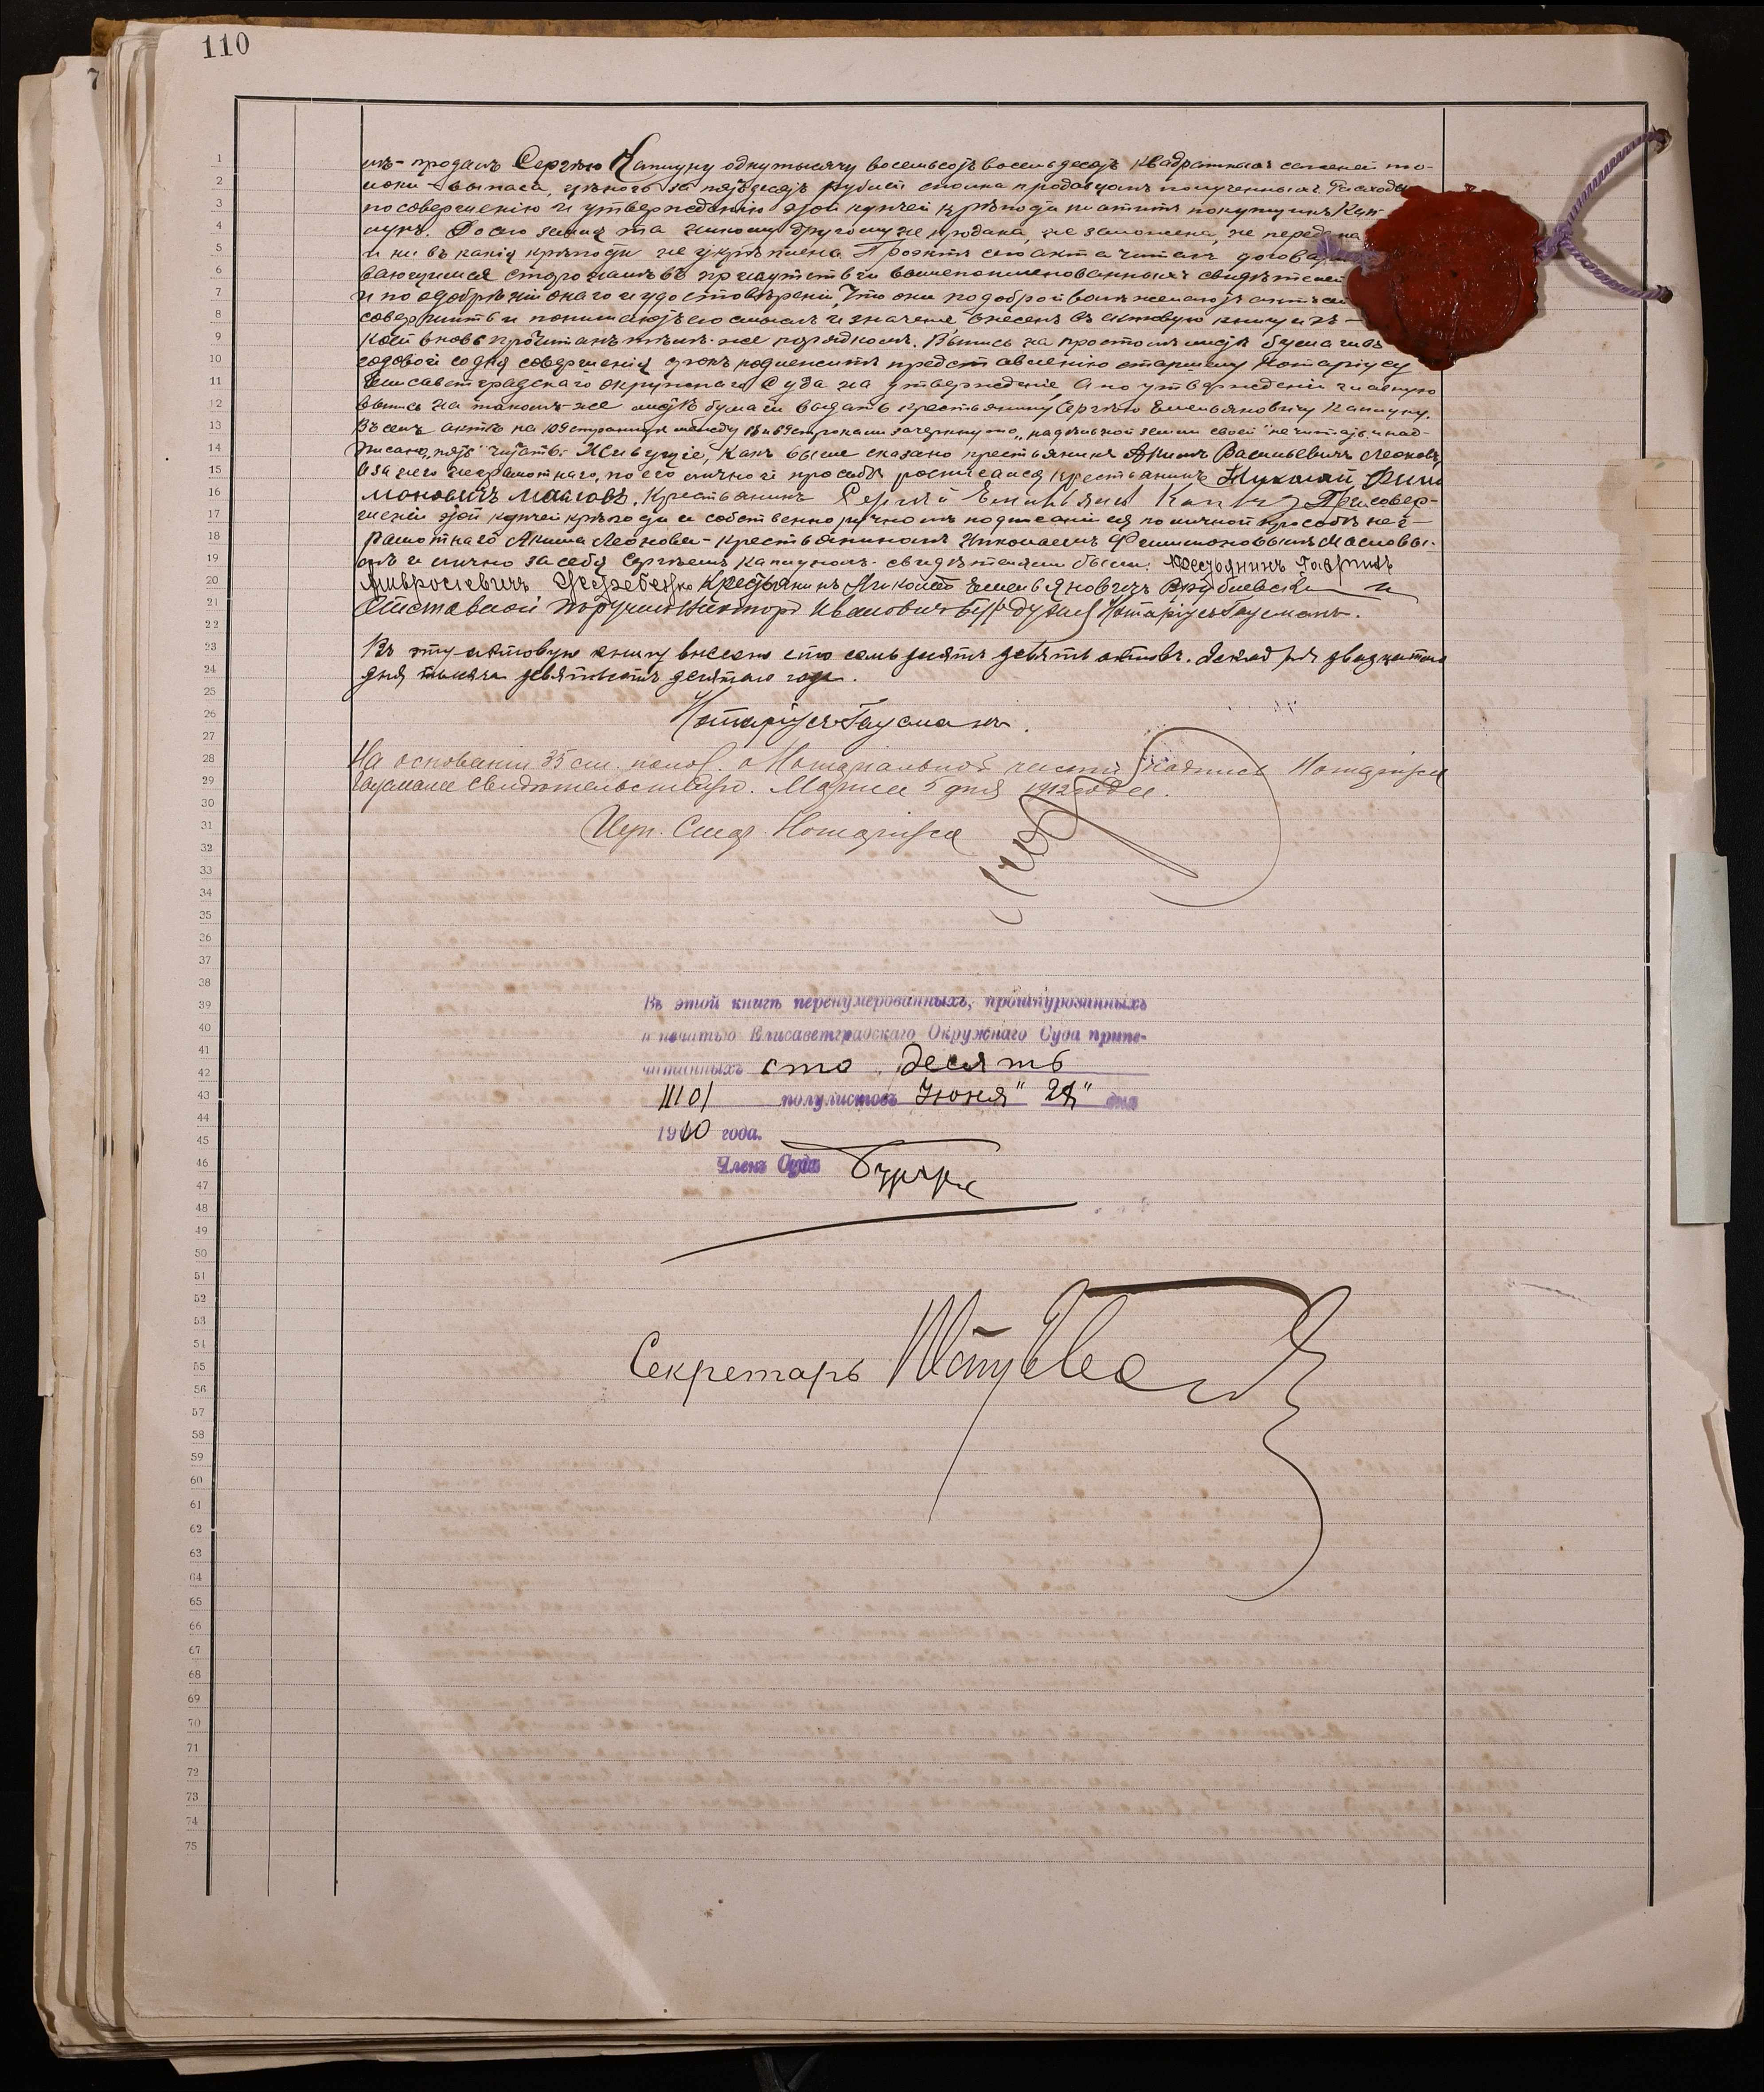 110
7
продалъ Сергѣю Капцуну одну тысячу восемьсотъ восемьдесятъ квадратныхъ саженей то-
локи-выпаса, цѣною за пятьдесятъ рублей сполна продавцомъ полученныхъ. Расходы
по совершенію и утвержденію этой купчей крѣпости платитъ покупщикъ Кап-
цунъ. До сего земля та никому другому не продана, не заложена, не передана
и ни въ какія крѣпости не укрѣплена. Проэктъ сего акта читалъ договари
вающимся сторонамъ въ присутствіи вышепоименованныхъ свидѣтелей
и по одобреніи онаго и удостовѣреніи, что они по доброй волѣ желаютъ актъ сей
совершить и понимаютъ его смыслъ и значеніе, внесенъ въ актовую книгу изъ
коей вновь прочитанъ тѣмъ-же порядкомъ. Выпись на простомъ листѣ бумаги въ
годовой со дня совершенія срокъ подлежитъ представленію старшему Нотаріусу
Елисаветградскаго Окружнаго Суда на утвержденіе, а по утвержденіи главную
выпись на такомъ-же листѣ бумаги выдать крестьянину Сергѣю Емельяновичу Капцуну.
Въ семъ актѣ на 109 страницѣ между строками зачеркнуто „надѣльной земли своей" не читать, и над-
писано „пять" читать. Живущіе, какъ выше сказано крестьянинъ Акимъ Васильевичъ Леоновъ,
а за него неграмотнаго, по его личной просьбѣ росписался крестьянинъ Николай Фили
моновичъ Масловъ. Крестьянинъ Сергѣй При совер-
шеніи этой купчей крѣпости и собственноручномъ подписаніи ея по личной просьбѣ нег-
рамотнаго Акима Леонова - крестьяниномъ Николаемъ Филимоновымъ Масловы-
мъ и лично за себя Сергѣемъ Капцуномъ свидѣтелями были: Крестьянинъ Гавриилъ
Амвросіевичъ Крестьянинъ Николай Емельяновичъ и
Отставной поручикъ Викторъ Ивановичъ Нотаріусъ Гаусманъ.
Въ эту актовую книгу внесено сто семьдесятъ девять актовъ. Декабря двадцатаго
дня тысяча девятьсотъ десятаго года.
Нотаріусъ Гаусманъ.
На основаніи 35 ст. полож. о Нотаріальной части подпись Нотаріуса
Гаусмана свидѣтельствую. Марта 5 дня 1912 года.
Исп. Стар. Нотаріуса
Въ этой книгѣ перенумерованныхъ, прошнурованныхъ
и печатью Елисаветградскаго Окружнаго Суда припе-
чатанныхъ сто десять
/110/ полулистовъ Іюня" "дня
1910 года.
Членъ Суда
Секретарь
1
2
3
4
5
6
7
8
9
10
11
12
13
14
15
16
17
18
19
20
21
22
23
24
25
26
27
28
29
30
31
32
33
34
35
36
37
38
39
40
41
42
43
44
45
46
47
48
49
50
51
52
53
54
55
56
57
58
59
60
61
62
63
64
65
66
67
68
69
70
71
72
73
74
75